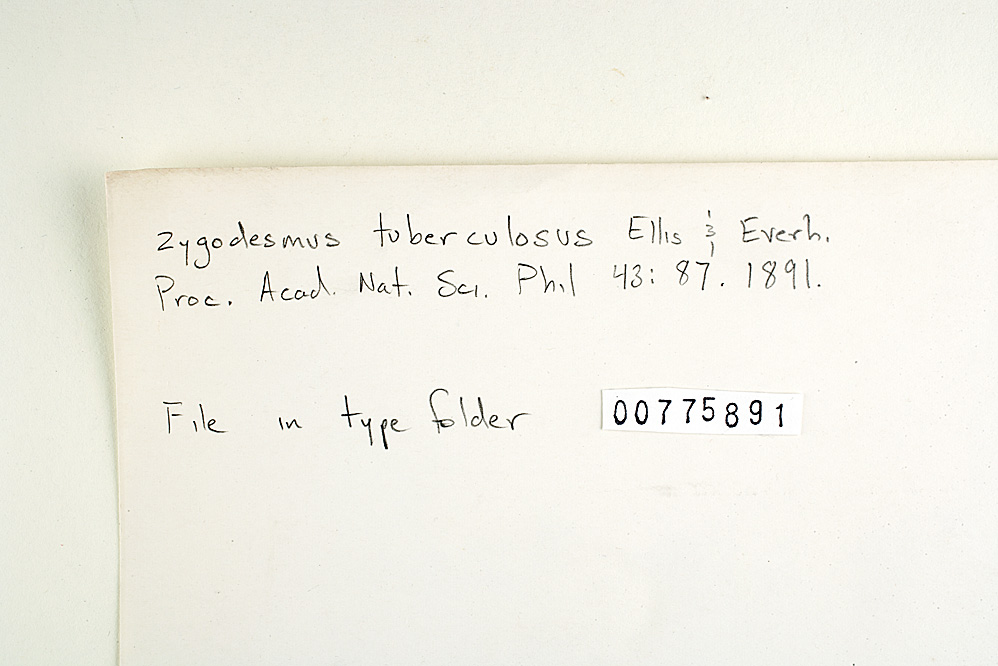 Zygodesmus tuberculosus Ellis & Everh.
Proc. Acad. Nat. Sci. Phil 43: 87. 1891.
File in type folder 00775891